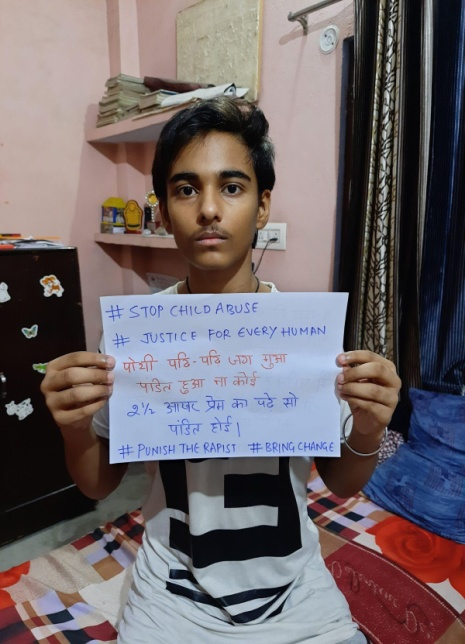 # STOP CHILD ABUSE
# JUSTICE FOR EVERY HUMAN
पोथी पढि-पढि जग मुआ
पंडित हुआ ना कोई
2½ आषर प्रेम का पढे सो
पंडित होई।
# PUNISH THE RAPIST # BRING CHANGE